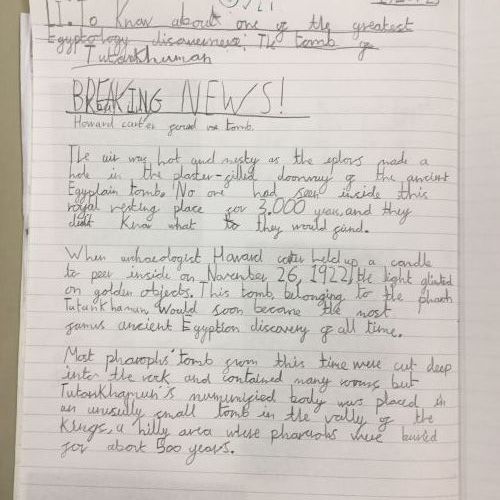 LI: To Know about one of the greatest
Egyptology discoveries: The tomb of
Tutankhuman
BREAKING NEWS!
Howard carter found the tomb.
The air was hot and musty as the explors made a
hole in the plaster-filled doorway of the ancient
Egyptain tomb. No one had seen inside this
royal resting place for 3,000 years, and they
didt know what to they would find.
When archaeologist Howard carter held up a candle
to peer inside on November 26, 1922, the light glinted
on golden objects. This tomb, belonging to the pharoh
Tutankhamun, would soon become the most
famus ancient Egyption discovery of all time.
Most pharophs' tomb from this time were cut deep
into the rock and contained many rooms, but
Tutankhamun's mummified body was placed in
an unusully small tomb in the vally of the
Kings, a hilly area where pharaohs were buried
for about 500 years.